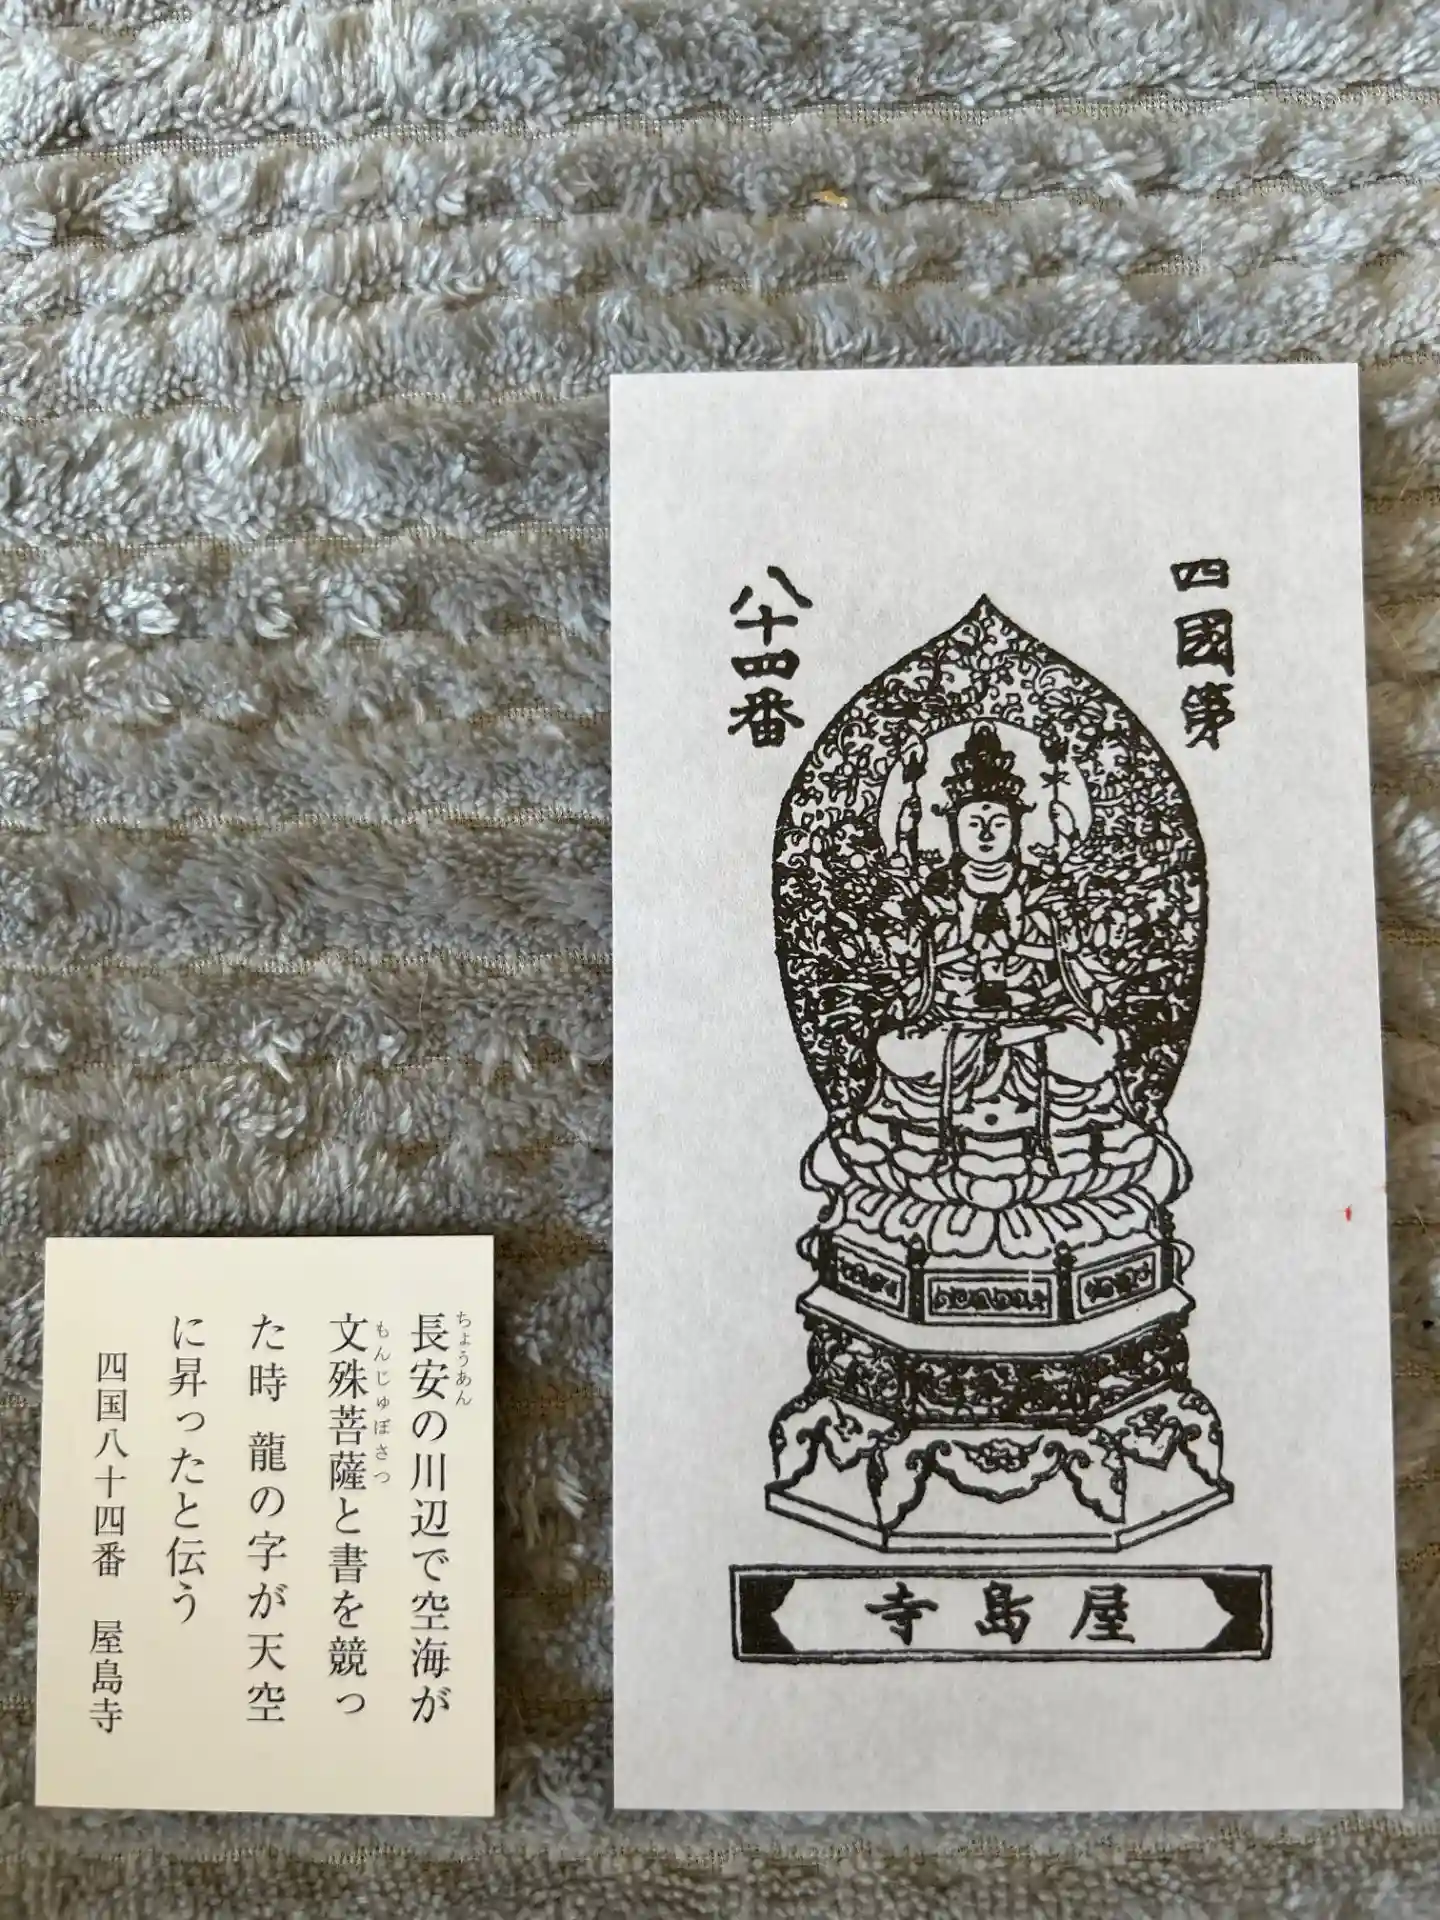 四國第
八十四番
屋島寺
長安の川辺で空海が
ちょうあん
文殊菩薩と書を競っ
もんじゅぼさつ
た時 龍の字が天空
に昇ったと伝う
四国八十四番 屋島寺